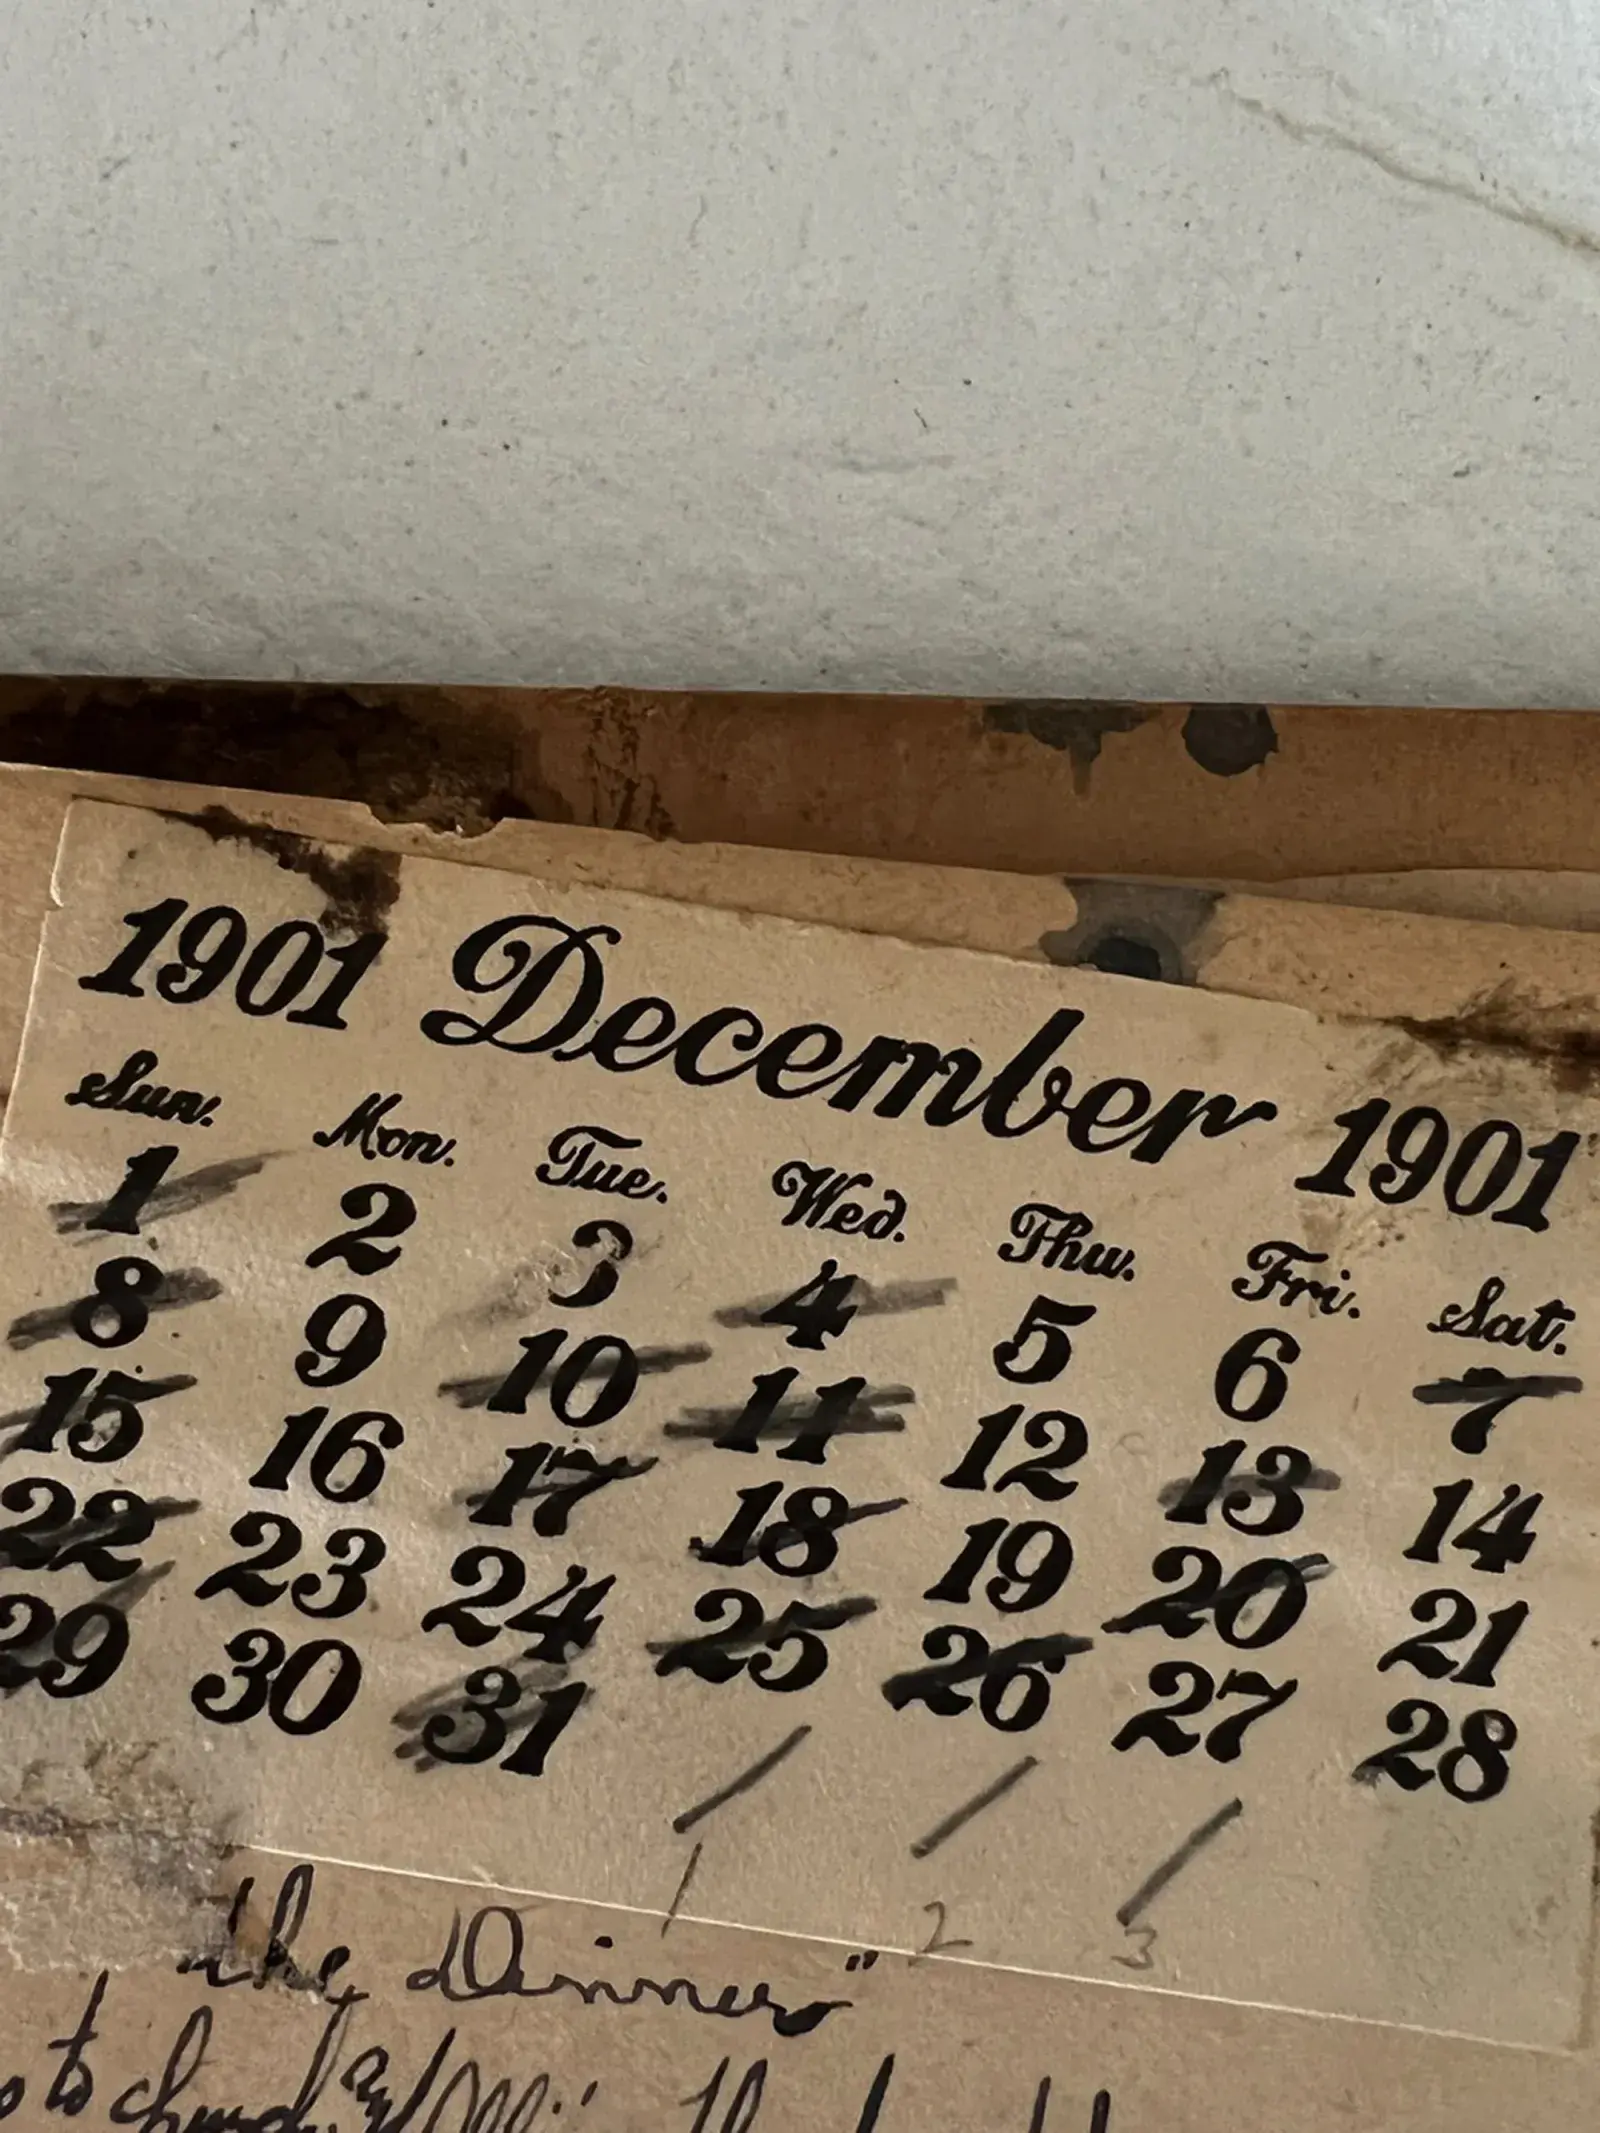 1901 December 1901
Sun. Mon. Tue. Wed. Thu. Fri. Sat.
1 2 3 4 5 6 7
8 9 10 11 12 13 14
15 16 17 18 19 20 21
22 23 24 25 26 27 28
29 30 31
1 2 3
the Dinner"
to church